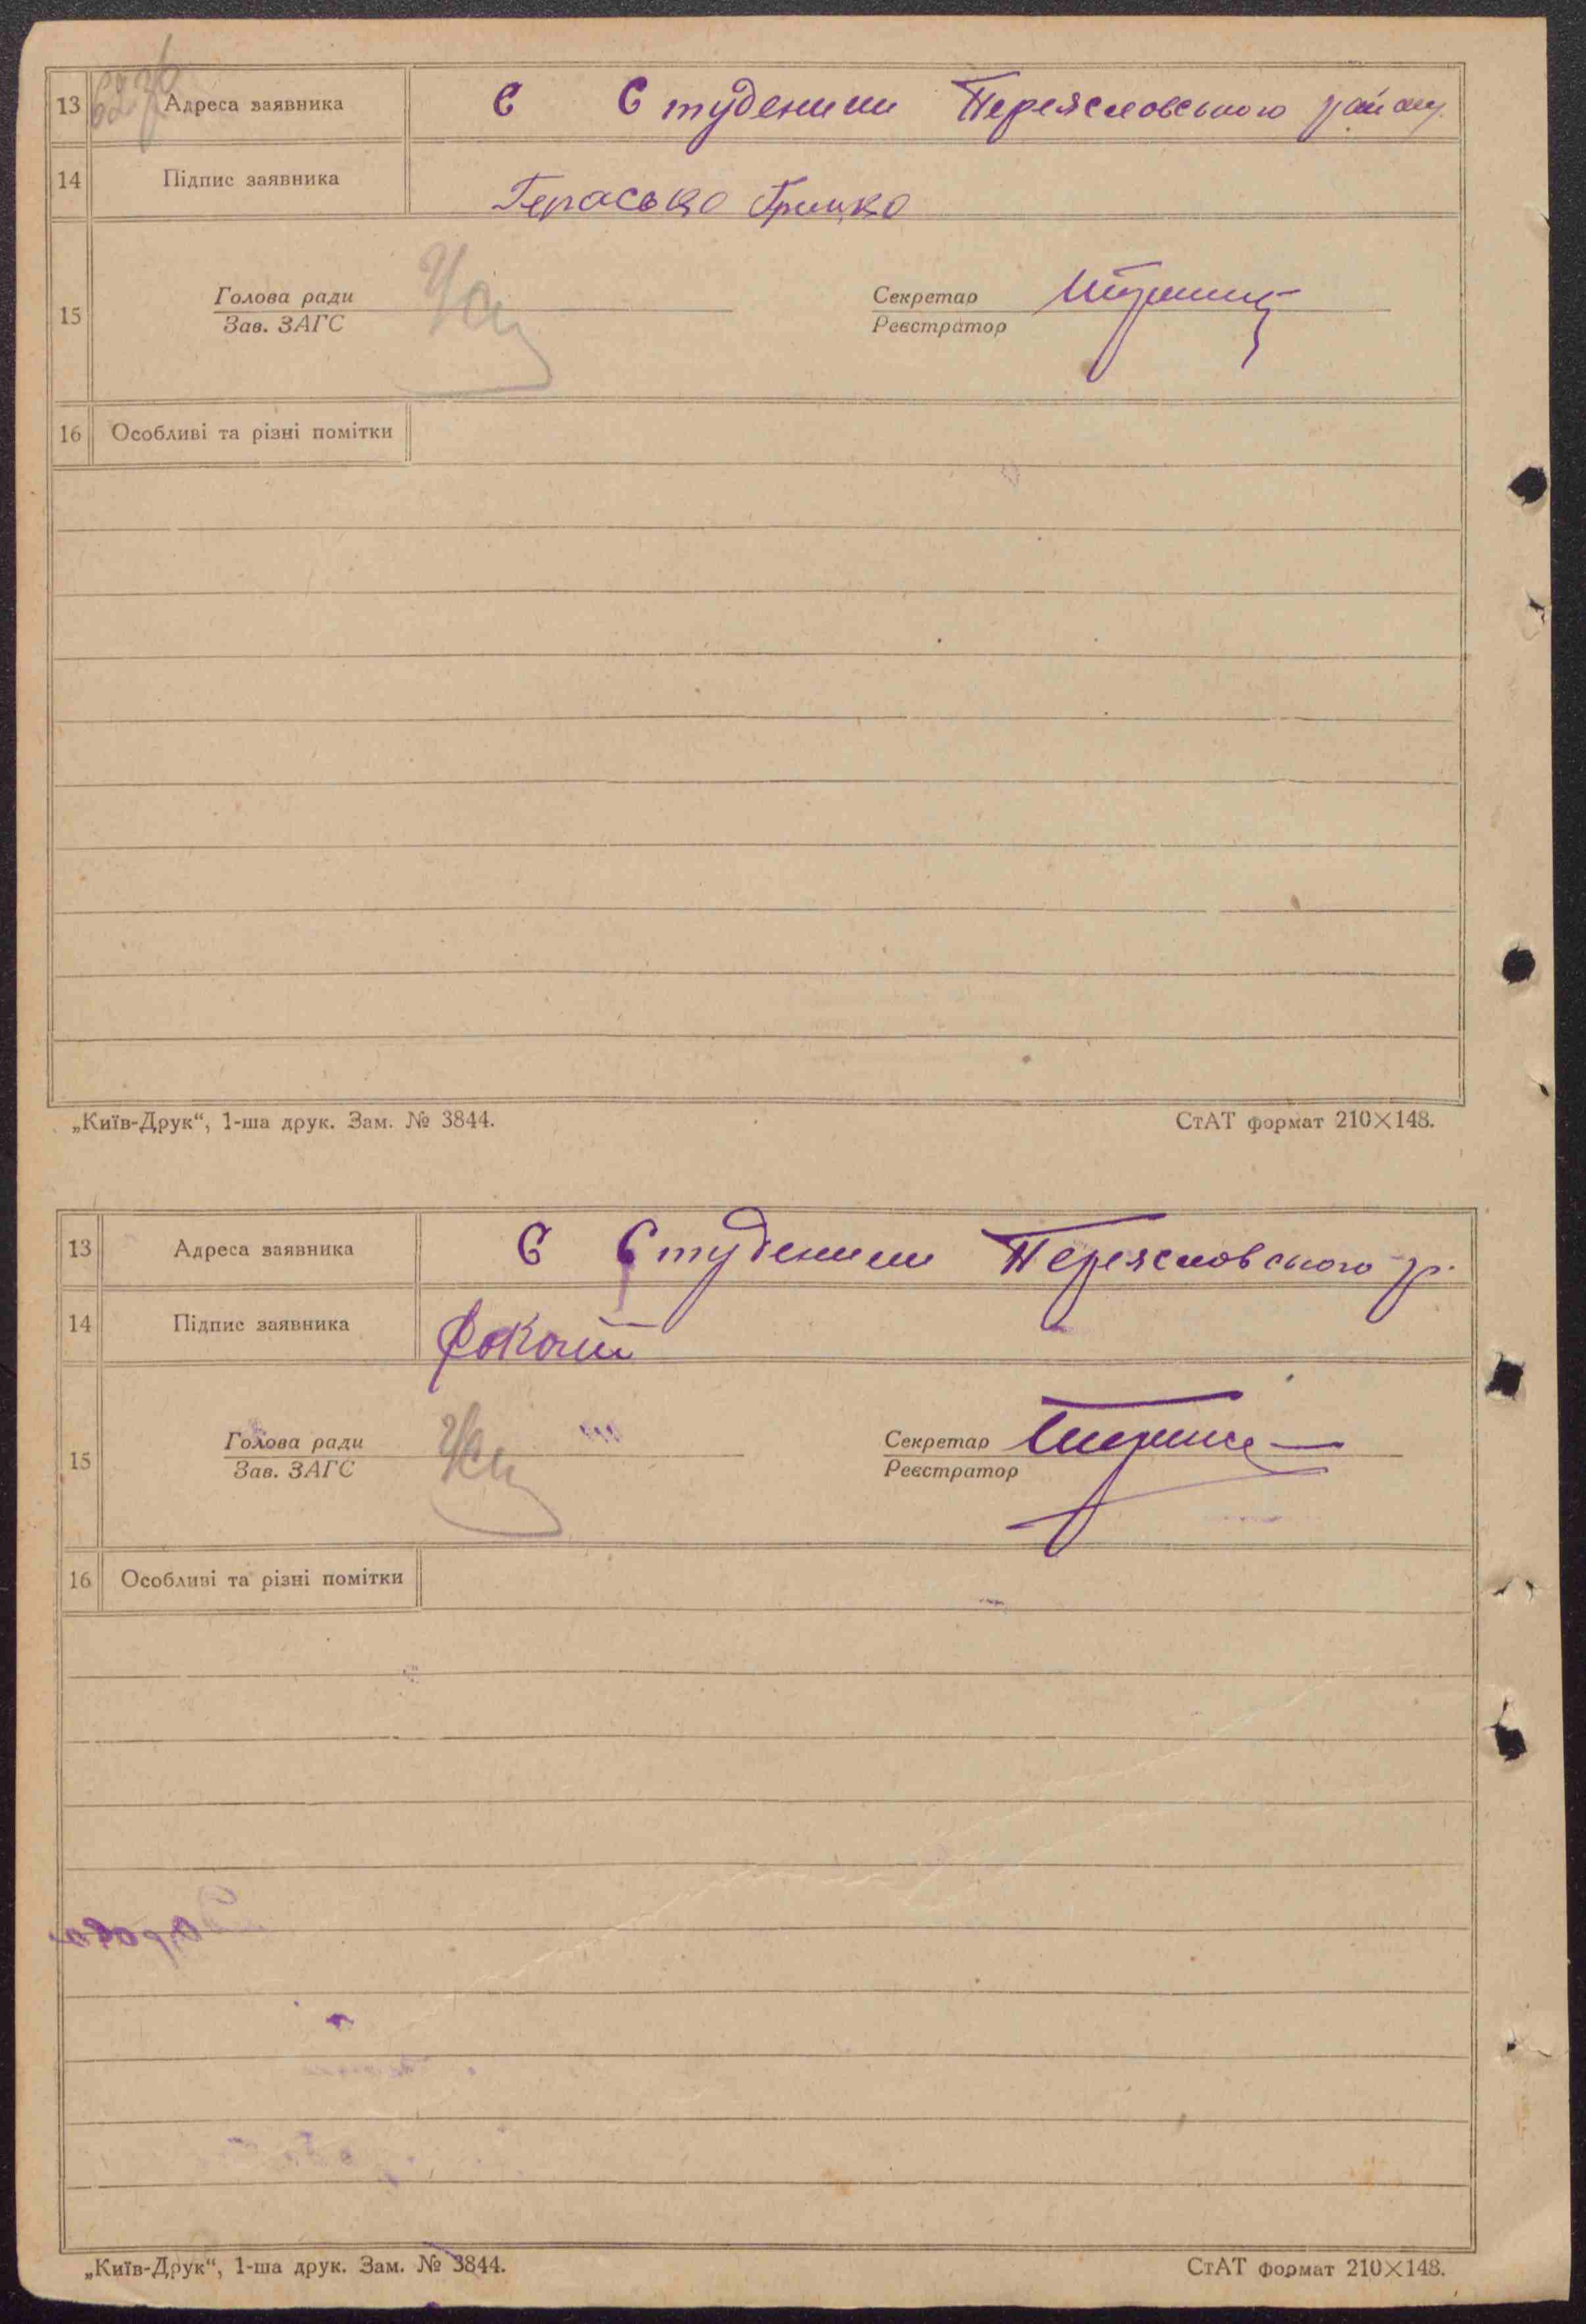 13 Адреса заявника С Студеники Переяславського району
14 Підпис заявника Герасько Грицко
15 Голова ради Секретар
Зав. ЗАГС Реєстратор
16 Особливі та різні помітки
„Київ-Друк“, 1-ша друк. Зам. № 3844. СтАТ формат 210×148.
13 Адреса заявника С Студеники Переяславського р.
14 Підпис заявника
15 Голова ради Секретар
Зав. ЗАГС Реєстратор
16 Особливі та різні помітки
„Київ-Друк“, 1-ша друк. Зам. № 3844. СтАТ формат 210×148.